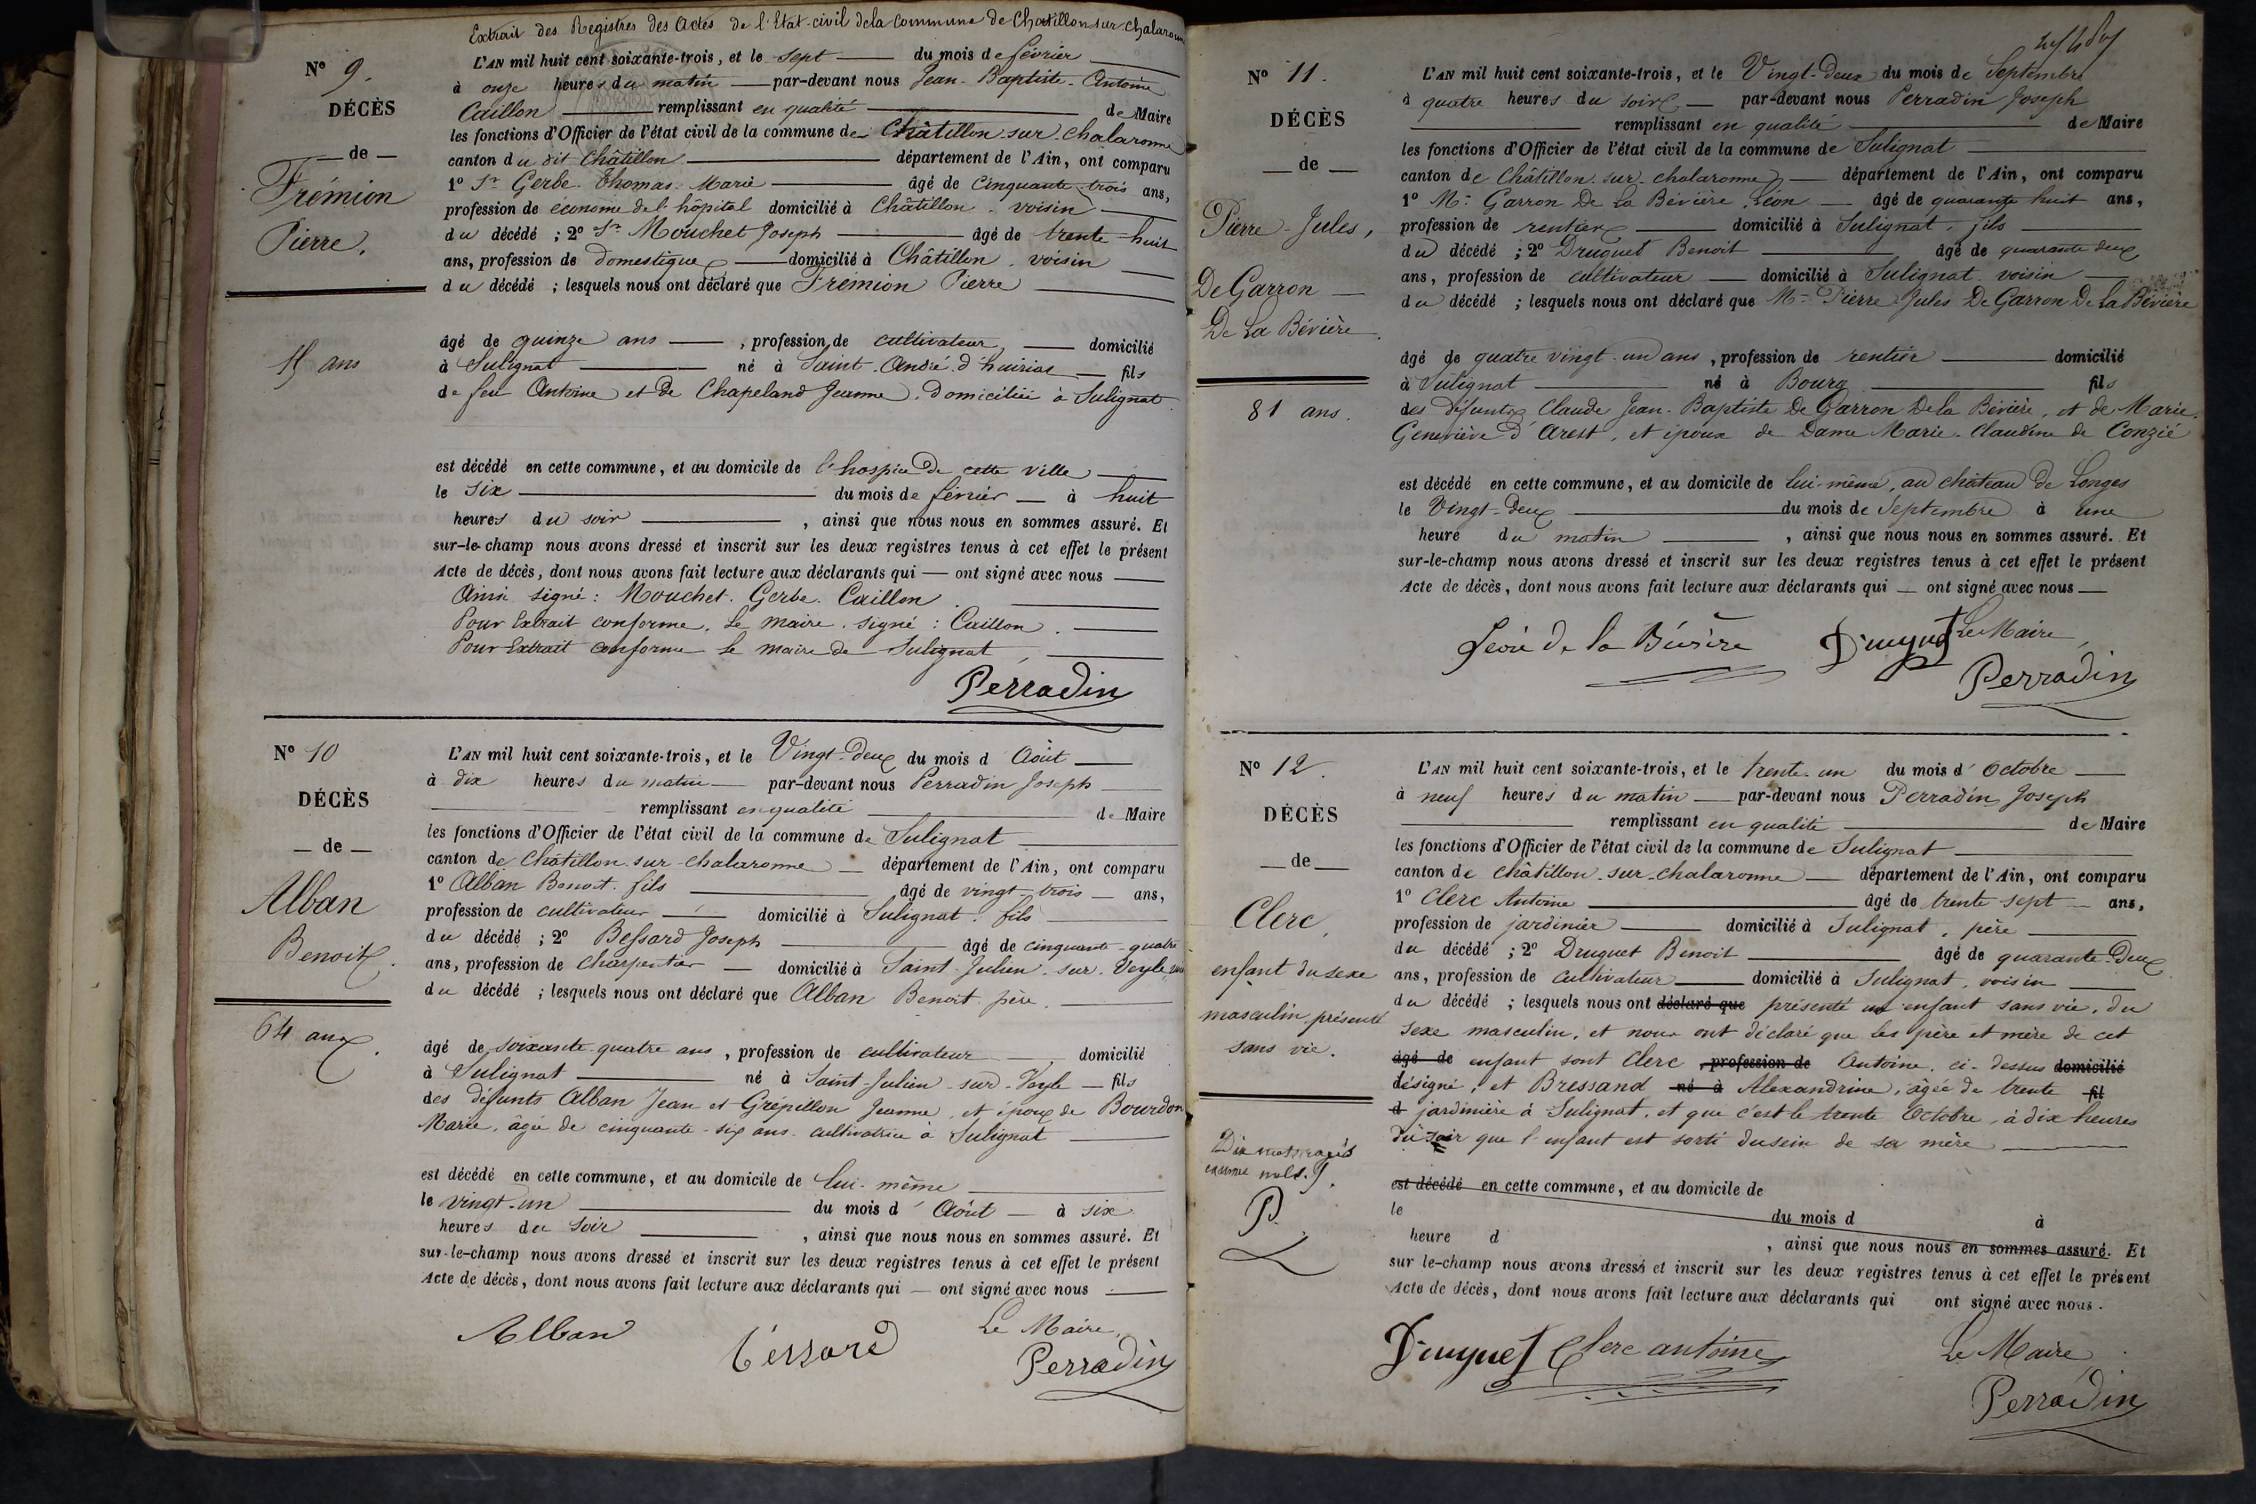 Extrait des Registres des Actes de l'Etat-civil de la Commune de Chatillon sur Chalaronne
N° 9.
DÉCÈS
— de —
Frémion
Pierre.
15 ans
L'AN mil huit cent soixante-trois, et le sept — du mois de février —
à onze heures du matin — par-devant nous Jean-Baptiste-Antoine
Caillon — remplissant en qualité — de Maire
les fonctions d'Officier de l'état civil de la commune de Châtillon sur Chalaronne
canton du dit Châtillon — département de l'Ain, ont comparu
1° Sr Gerbe Thomas Marie — âgé de cinquante-trois ans,
profession de économe de l'hôpital domicilié à Châtillon, voisin —
du décédé ; 2° Sr Mouchet Joseph — âgé de trente-huit
ans, profession de domestique — domicilié à Châtillon, voisin —
du décédé ; lesquels nous ont déclaré que Frémion Pierre —
âgé de quinze ans — , profession de cultivateur, — domicilié
à Sulignat — né à Saint-André-d'huiriat — fils
de feu Antoine et de Chapeland Jeanne, domiciliée à Sulignat
est décédé en cette commune, et au domicile de l'hospice de cette ville —
le six — du mois de février — à huit
heures du soir — , ainsi que nous nous en sommes assuré. Et
sur-le-champ nous avons dressé et inscrit sur les deux registres tenus à cet effet le présent
Acte de décès, dont nous avons fait lecture aux déclarants qui — ont signé avec nous —
Ainsi signé : Mouchet. Gerbe. Caillon. —
Pour Extrait conforme, Le maire, signé : Caillon. —
Pour Extrait conforme Le maire de Sulignat, —
Perradin
N° 10
DÉCÈS
— de —
Alban
Benoit.
64 ans.
L'AN mil huit cent soixante-trois, et le Vingt-deux du mois d'Août —
à dix heures du matin — par-devant nous Perradin Joseph —
— remplissant en qualité — de Maire
les fonctions d'Officier de l'état civil de la commune de Sulignat —
canton de Châtillon-sur-chalaronne — département de l'Ain, ont comparu
1° Alban Benoit fils — âgé de vingt-trois — ans,
profession de cultivateur — domicilié à Sulignat, fils —
du décédé ; 2° Bessard Joseph — âgé de cinquante-quatre
ans, profession de charpentier — domicilié à Saint-Julien-sur-Veyle,
du décédé ; lesquels nous ont déclaré que Alban Benoit père. —
âgé de soixante-quatre ans , profession de cultivateur — domicilié
à Sulignat — né à Saint-Julien-sur-Veyle — fils
des défunts Alban Jean et Grépillon Jeanne, et époux de Bourdon
Marie, âgée de cinquante-six ans cultivatrice à Sulignat —
est décédé en cette commune, et au domicile de lui-même —
le vingt-un — du mois d'Août — à six
heures du soir — , ainsi que nous nous en sommes assuré. Et
sur-le-champ nous avons dressé et inscrit sur les deux registres tenus à cet effet le présent
Acte de décès, dont nous avons fait lecture aux déclarants qui — ont signé avec nous —
Alban Bessard Le Maire,
Perradin
N° 11.
DÉCÈS
— de —
Pierre-Jules,
De Garron —
De La Bévière.
81 ans.
L'AN mil huit cent soixante-trois, et le Vingt-Deux du mois de Septembre
à quatre heures du soir — par-devant nous Perradin Joseph
— remplissant en qualité — de Maire
les fonctions d'Officier de l'état civil de la commune de Sulignat —
canton de Châtillon-sur-chalaronne — département de l'Ain, ont comparu
1° Mr Garron De La Bévière Léon — âgé de quarante huit ans,
profession de rentier — domicilié à Sulignat, fils —
du décédé ; 2° Druguet Benoit — âgé de quarante deux
ans, profession de cultivateur — domicilié à Sulignat voisin —
du décédé ; lesquels nous ont déclaré que Mr Pierre Jules De Garron De La Bévière
âgé de quatre vingt-un ans , profession de rentier — domicilié
à Sulignat — né à Bourg — fils
des défunts Claude Jean-Baptiste De Garron De la Bévière, et de Marie
Geneviève d'Arest, et époux de Dame Marie-Claudine de Conzié
est décédé en cette commune, et au domicile de lui-même, au château de Longes
le Vingt-deux — du mois de Septembre à une
heure du matin — , ainsi que nous nous en sommes assuré. Et
sur-le-champ nous avons dressé et inscrit sur les deux registres tenus à cet effet le présent
Acte de décès, dont nous avons fait lecture aux déclarants qui — ont signé avec nous —
Léon de la Bévière Druguet Le Maire,
Perradin
N° 12.
DÉCÈS
— de —
Clerc,
enfant du sexe
masculin, présenté
sans vie.
Dix mots rayés
comme nuls.
P.
L'AN mil huit cent soixante-trois, et le trente-un du mois d'Octobre —
à neuf heures du matin — par-devant nous Perradin Joseph
— remplissant en qualité — de Maire
les fonctions d'Officier de l'état civil de la commune de Sulignat —
canton de châtillon-sur-chalaronne — département de l'Ain, ont comparu
1° Clerc Antoine — âgé de trente sept — ans,
profession de jardinier — domicilié à Sulignat, père —
du décédé ; 2° Druguet Benoit — âgé de quarante-Deux
ans, profession de cultivateur — domicilié à Sulignat, voisin —
du décédé ; lesquels nous ont déclaré que présenté un enfant sans vie, du
sexe masculin, et nous ont déclaré que les père et mère de cet
âgé de enfant sont Clerc , profession de Antoine, ci-dessus domicilié
désigné, et Bressand né à Alexandrine, âgée de trente fil
d jardinière à Sulignat, et que c'est le trente Octobre, à dix heures
du soir que l'enfant est sorti du sein de sa mère —
est décédé en cette commune, et au domicile de
le du mois d à
heure d , ainsi que nous nous en sommes assuré. Et
sur le-champ nous avons dressé et inscrit sur les deux registres tenus à cet effet le présent
Acte de décès, dont nous avons fait lecture aux déclarants qui ont signé avec nous.
Druguet Clerc antoine Le Maire,
Perradin